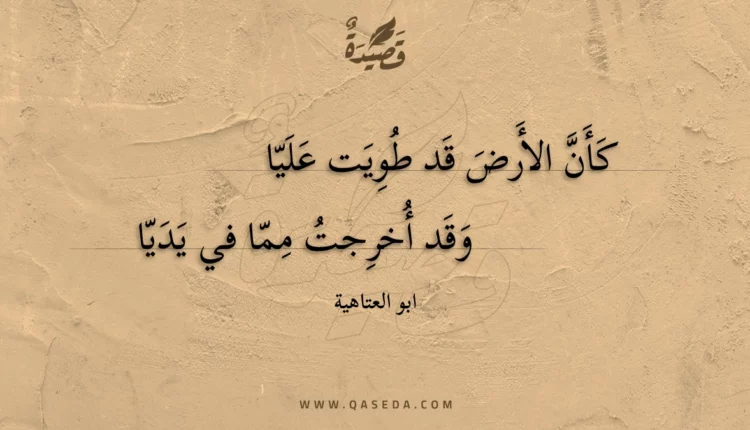 قَصِيدَةٌ
كَأَنَّ الأَرضَ قَد طُوِيَت عَلَيّا
وَقَد أُخرِجتُ مِمّا في يَدَيّا
ابو العتاهية
WWW.QASEDA.COM